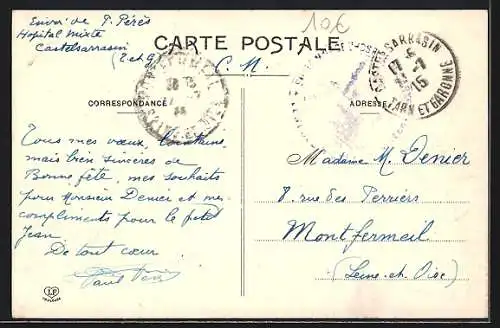 Envoi de P. Pérès
Hopital Mixte
Castelsarrasin
(T et G)
10€
CARTE POSTALE
C. M.
CORRESPONDANCE
ADRESSE
CASTELSARRASIN
17 15
TARN ET GARONNE
Tous mes vœux, lointains,
mais bien sincères de
Bonne fête, mes souhaits
pour Monsieur Denier et mes
compliments pour le petit
Jean.
De tout cœur
Madame M. Denier
8 rue des Perriers
Montfermeil
(Seine-et-Oise)